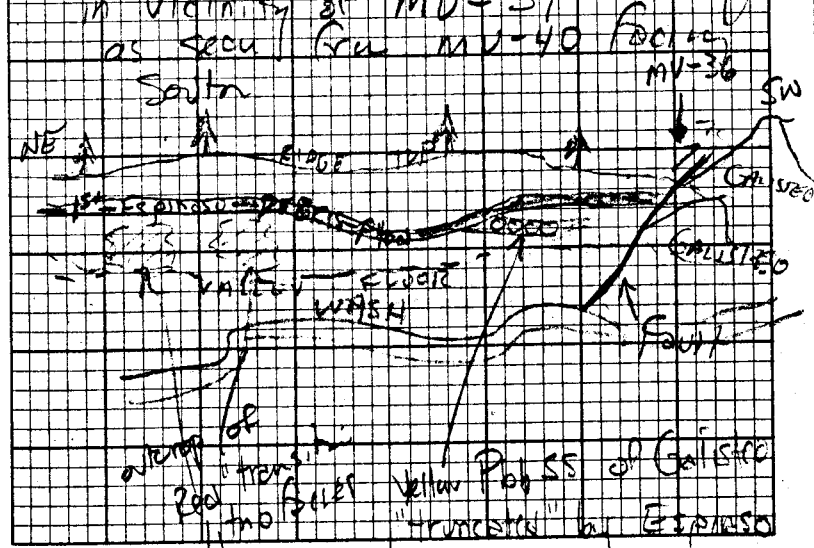 in vicinity of MV-37
as seen from MV-40 facing
South
MV-36
SW
NE
RIDGE TOP
GALISTEO
1st Espinaso Pebble
GALISTEO
VALLEY FLOOR
WASH
Fault
outcrop of
Red "transition
Yellow Pebb SS of Galisteo
"truncated" by Espinaso